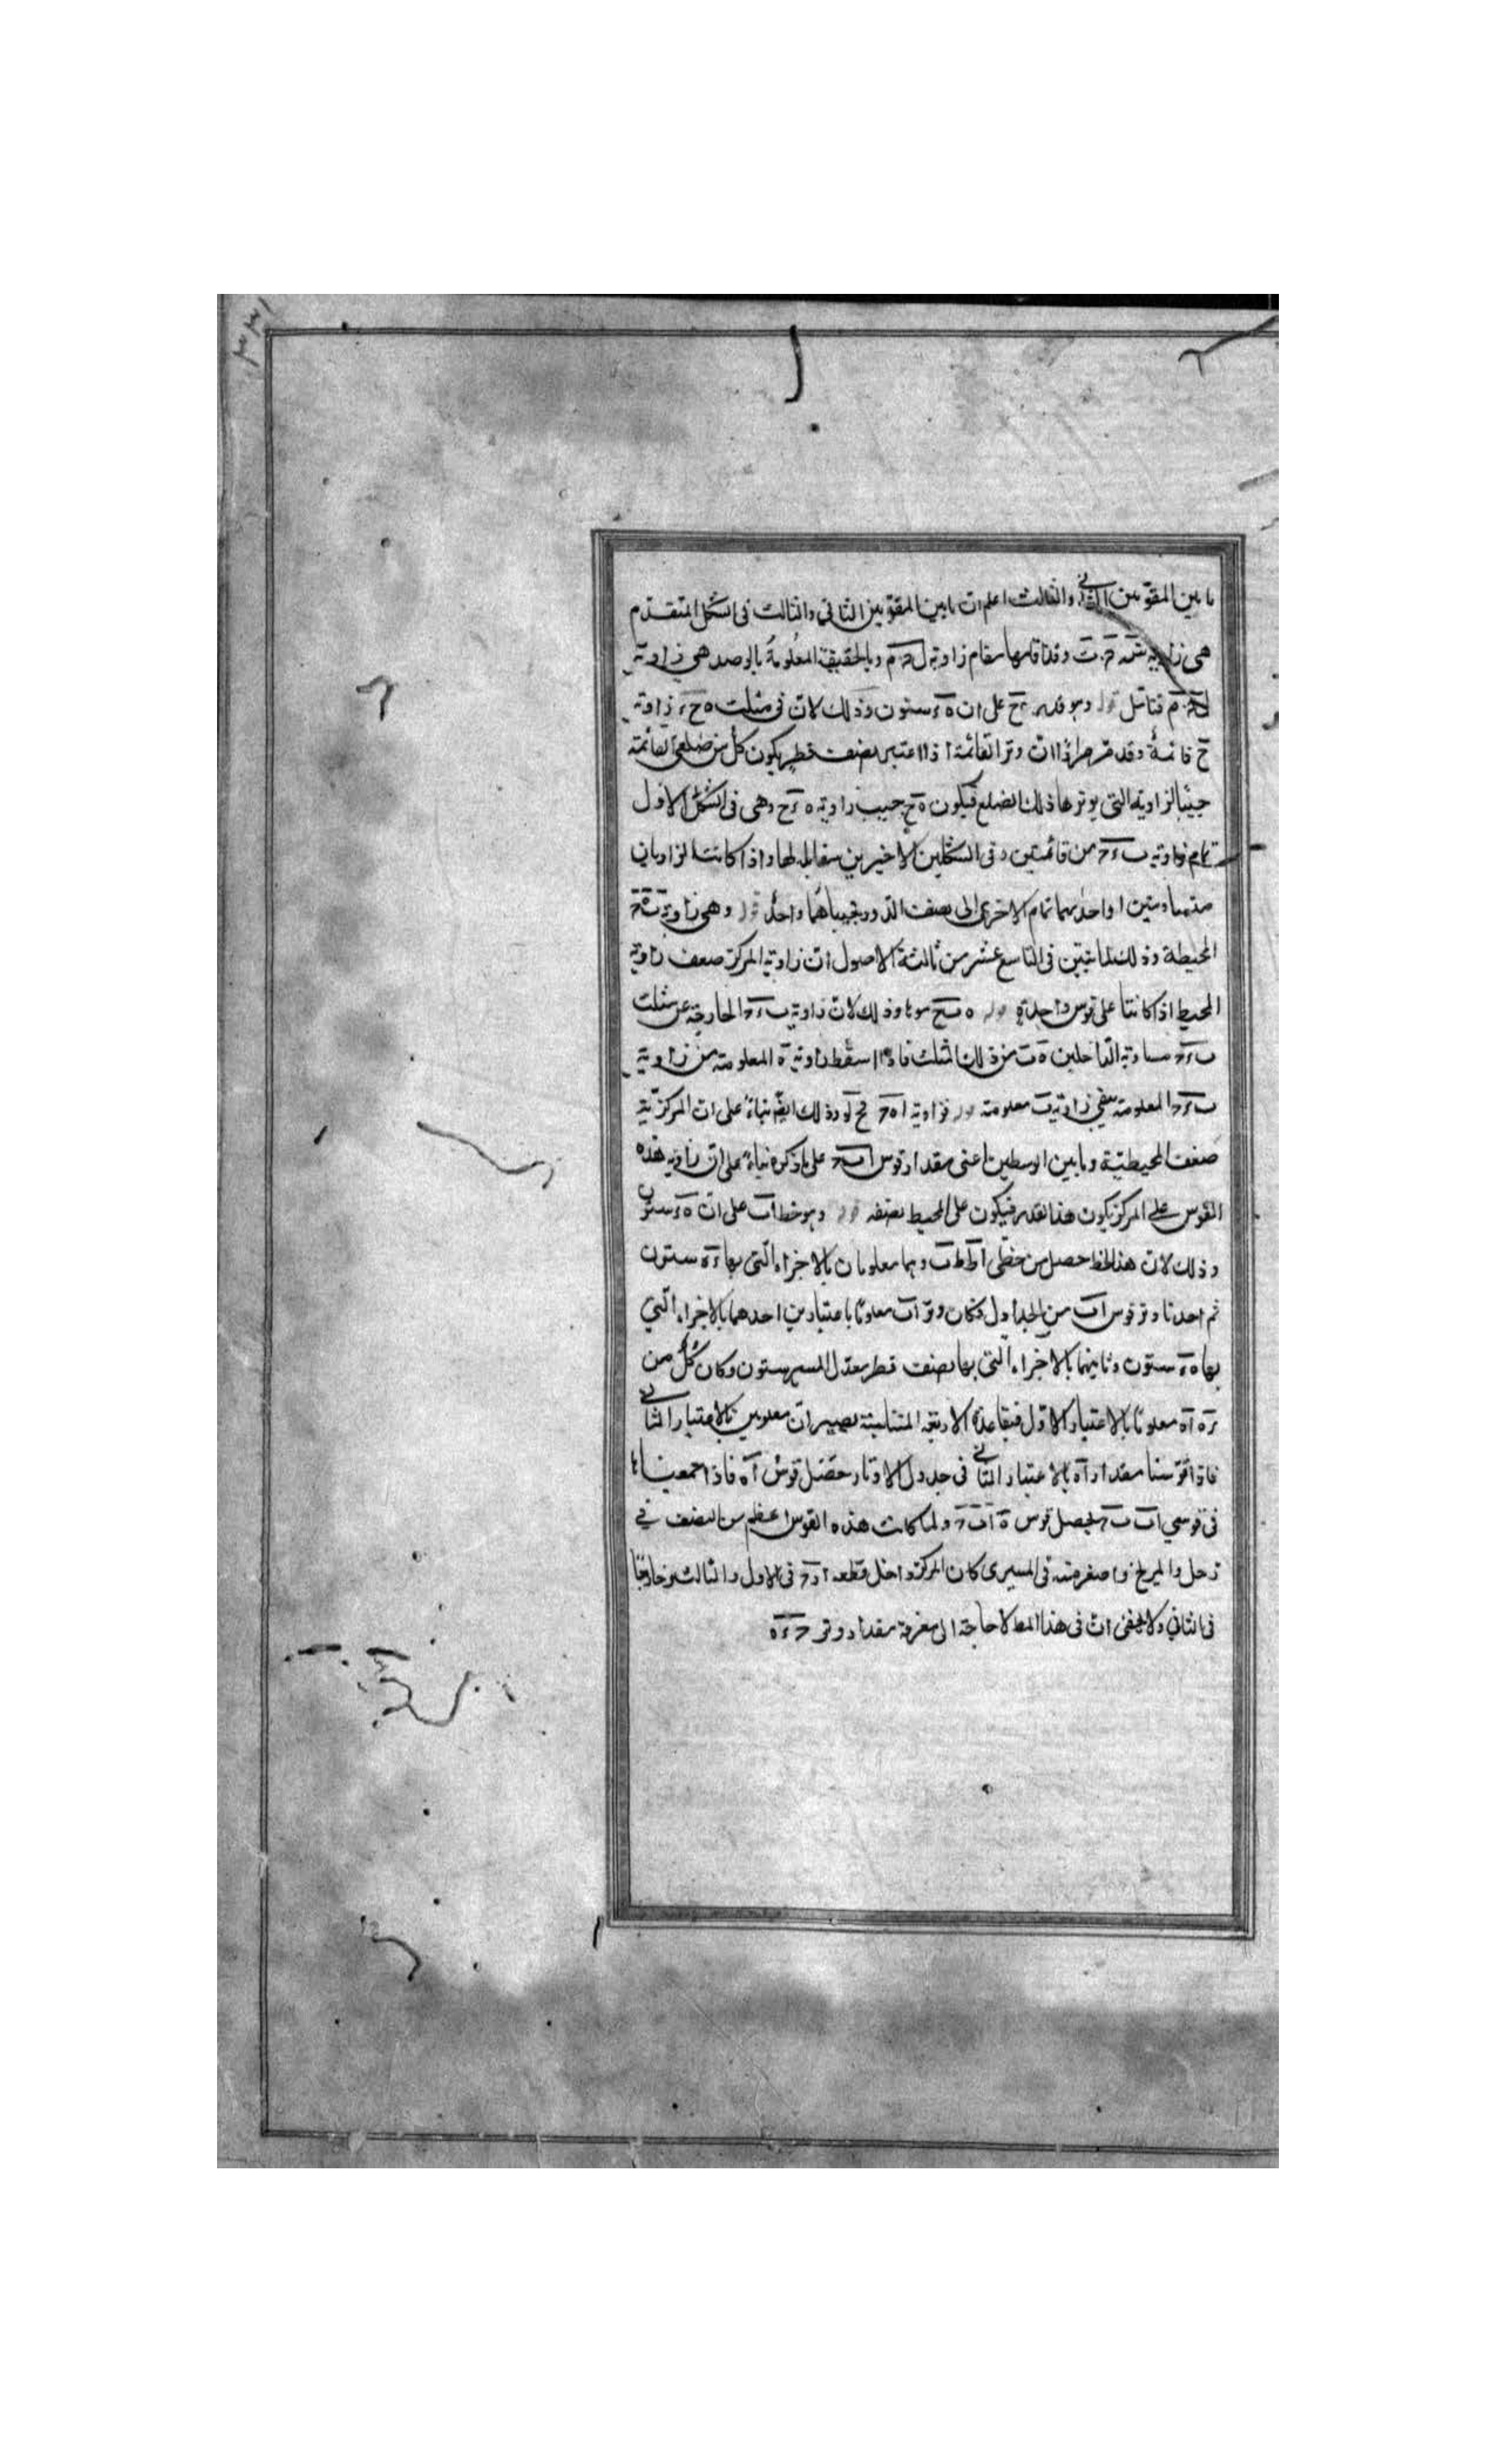 ما بين المقومين الثاني والثالث اعلم ان ما بين المقومين الثاني والثالث في الشكل المتقدم
هي زاوية وقد اقامها مقام زاوية ل ح م وبالحقيقة المعلومة بالرصد هي زاوية
م فتأمل قوله وهو قدر ح على ان ه ء ستون وذلك لان في مثلث ه ح ء زاوية
ح قائمة وقد مر مرارا ان وتر القائمة اذا اعتبر نصف قطر يكون كل من ضلعي القائمة
جيبا لزاوية التي يوترها ذلك الضلع فيكون ه ح جيب زاوية ه ء ح وهي في الشكل الاول
تمام زاوية ب ء ح من قائمتين وفي الشكلين الاخيرين مقابلة لها واذا كانت الزاويتان
متساويتين او احدٰهما تمام الاخرى الى نصف الدور فجيباهما واحد قوله وهي زاوية ب ه ح
المحيطة وذلك لما تبين في التاسع عشر من ثالثة الاصول ان زاوية المركز ضعف زاوية
المحيط اذا كانتا على قوس واحدة قوله وذلك لان زاوية ب ء ح الخارجة عن مثلث
ب ء ه مساوية الداخلين ه ب من ذلك المثلث فاذا اسقط زاوية ه المعلومة من زاوية
ب ء ح المعلومة بقي زاوية ب معلومة قوله فزاوية ا ه ح وذلك ايضا بناء على ان المركزية
ضعف المحيطية وما بين الوسطين اعني مقدار قوس ا ب ح على ما ذكره بناء على ان زاوية هذه
القوس على المركز يكون هذا القدر فيكون على المحيط نصفه قوله وهو خط ا ب على ان ه ء ستون
وذلك لان هذا الخط حصل من خطي ا ط ط ب وهما معلومان بالاجزاء التي بها ء ه ستون
ثم اخذنا وتر قوس ا ب من الجداول فكان وتر ا ب معلوما باعتبارين احدهما بالاجزاء التي
بها ه ء ستون وثانيهما بالاجزاء التي بها نصف قطر معدل المسير ستون وكان كل من
ء ه ا ه معلوما بالاعتبار الاول فبقاعدة الاربعة المتناسبة يصيران معلومين بالاعتبار الثاني
فاذا قوسنا مقدار ا ه بالاعتبار الثاني في جدول الاوتار حصل قوس ا ه فاذا جمعناها
في قوسي ا ب ب ح يحصل قوس ه ا ب ح ولما كانت هذه القوس اعظم من النصف في
زحل والمريخ واصغر منه في المشتري كان المركز داخل قطعة في الاول والثالث وخارجا
في الثاني ولا يخفى ان في هذا المط لا حاجة الى معرفة مقدار وتر ح ء ه